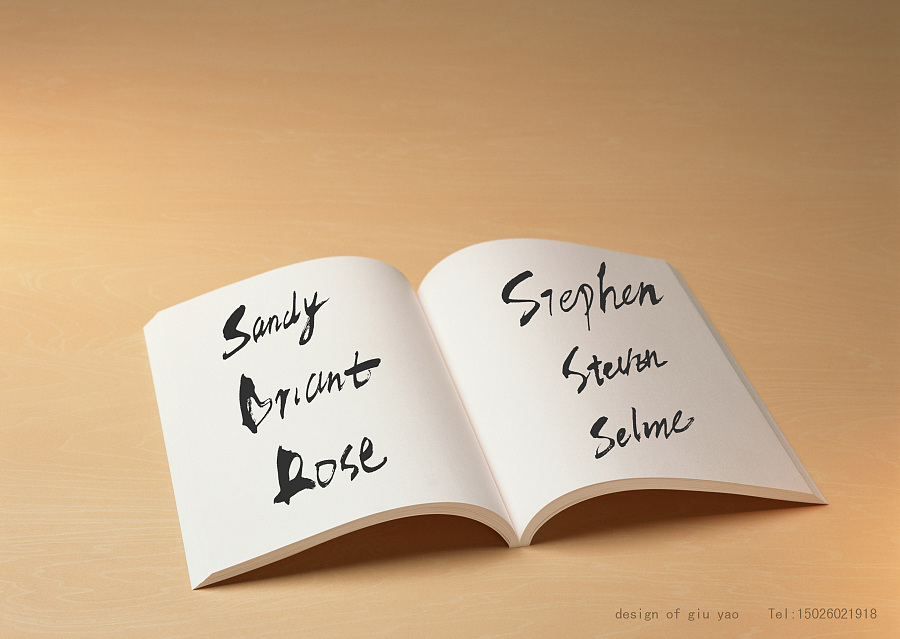 Sandy
Briant
Rose
Stephen
Steven
Selme
design of giu yao Tel:15026021918